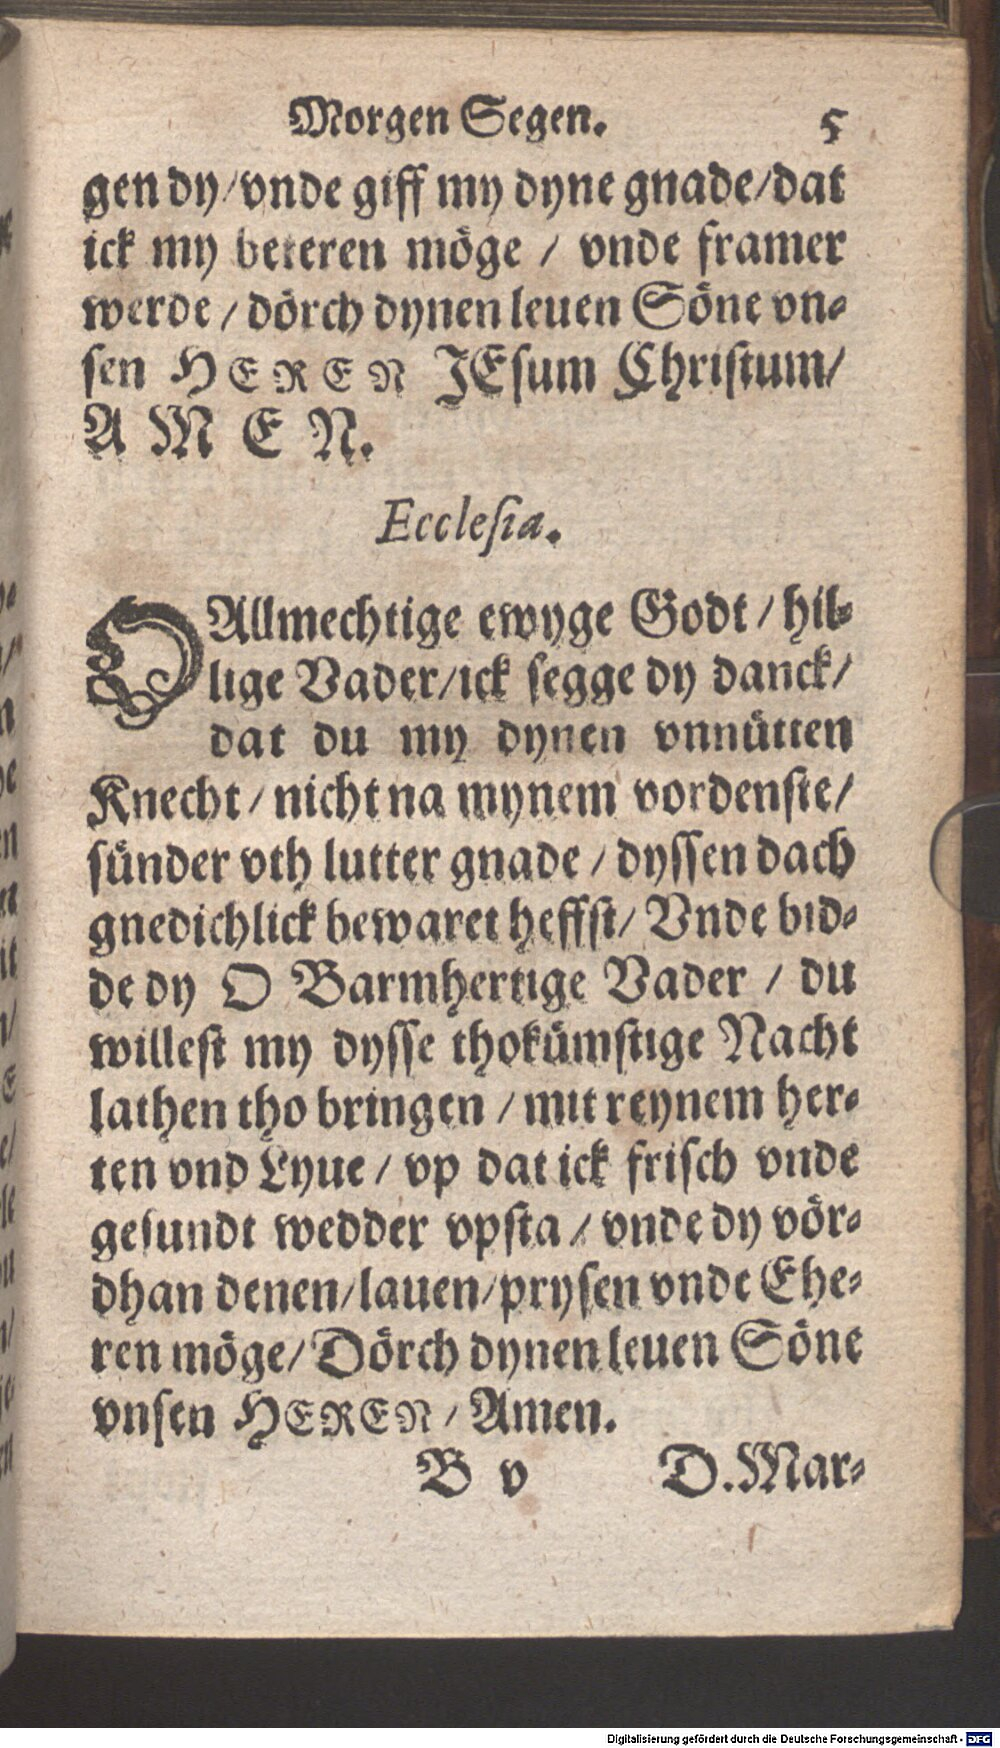 Morgen Segen. 5
gen dy/vnde giff my dyne gnade/dat
ick my beteren möge / vnde framer
werde / dörch dynen leuen Söne vn⸗
sen HEREN JEsum Christum/
AMEN.
Ecclesia.
O Allmechtige ewyge Godt / hil⸗
lige Vader/ick segge dy danck/
dat du my dynen vnnütten
Knecht / nicht na mynem vordenste/
sünder vth lutter gnade / dyssen dach
gnedichlick bewaret heffst/ Vnde bid⸗
de dy O Barmhertige Vader / du
willest my dysse thokümstige Nacht
lathen tho bringen / mit reynem her⸗
ten vnd Lyue / vp dat ick frisch vnde
gesundt wedder vpsta / vnde dy vör⸗
dhan denen/lauen/prysen vnde Ehe⸗
ren möge/ Dörch dynen leuen Söne
vnsen HEREN / Amen.
B v D.Mar⸗
Digitalisierung gefördert durch die Deutsche Forschungsgemeinschaft - DFG